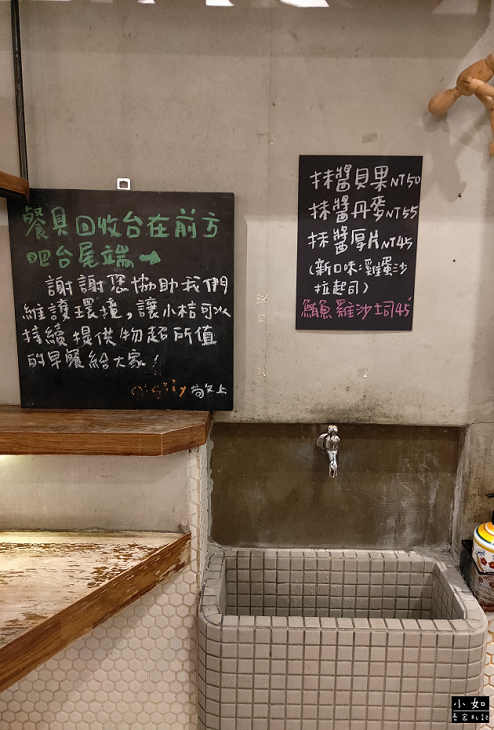 餐具回收台在前方
吧台尾端→
謝謝您協助我們
維護環境,讓小桔可以
持續提供物超所值
的早餐給大家!
敬上
抹醬貝果NT50
抹醬丹麥NT55
抹醬厚片NT45
(新口味:雞蛋沙
拉起司)
鮪魚雞沙土司45
小如